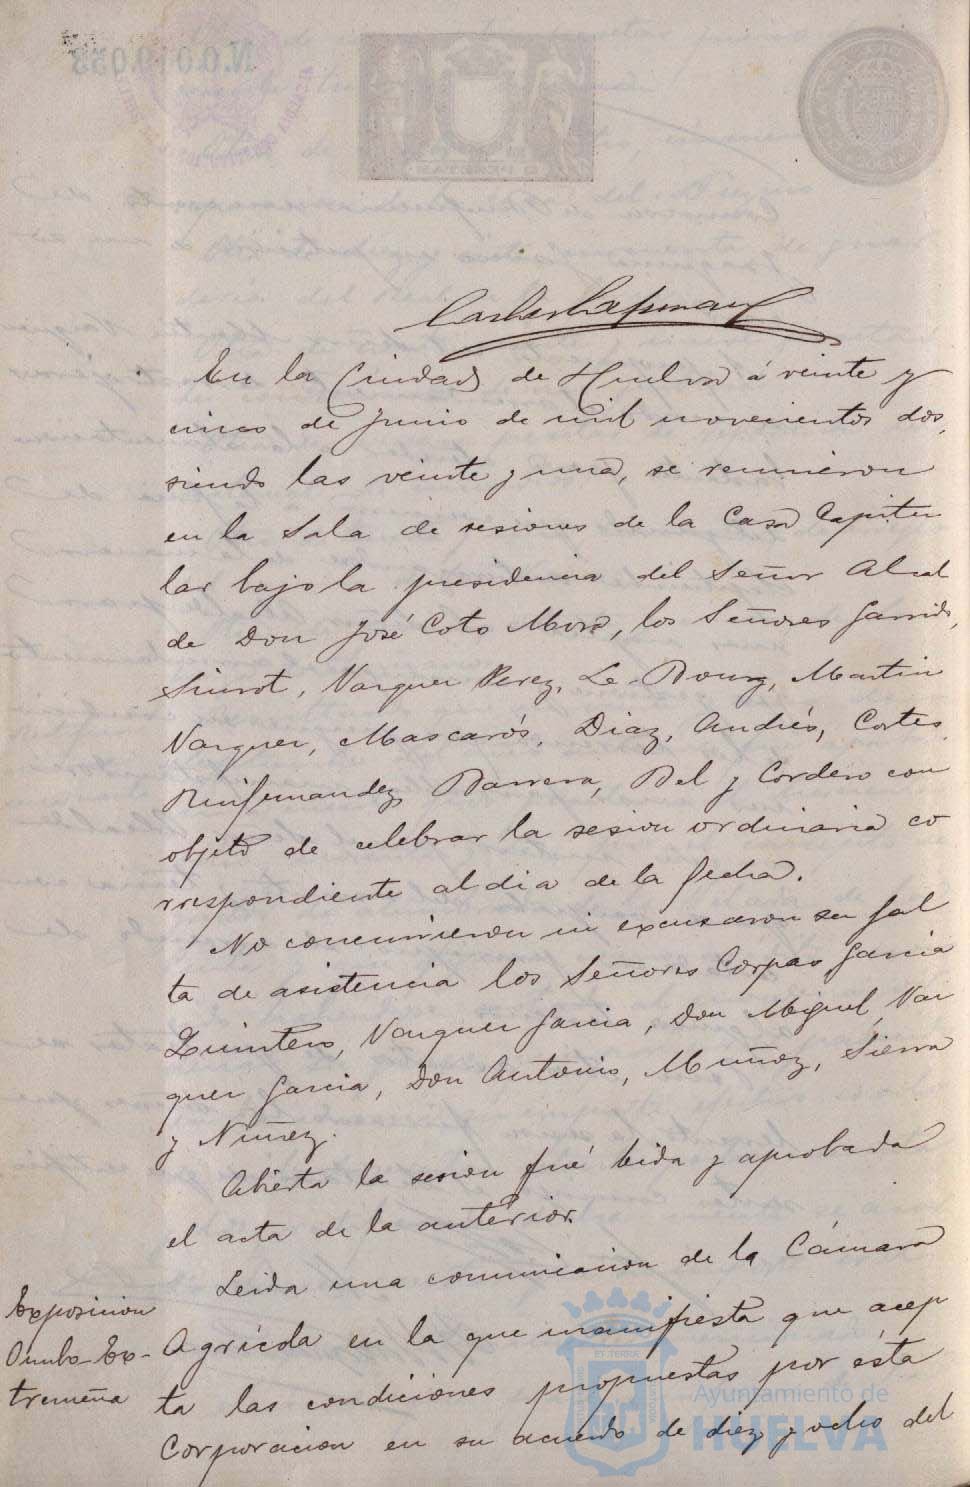 N.0.019.033
En la Ciudad de Huelva á veinte y
cinco de Junio de mil novecientos dos,
siendo las veinte y una, se reunieron
en la Sala de sesiones de la Casa Capitu
lar bajo la presidencia del Señor Alcal
de Don José Coto Mora, los Señores Garrido,
Siurot, Vazquez Perez, Le Bourg, Martin
Vazquez, Mascarós, Diaz, Andrés, Cortes,
Ruifernandez, Barrera, Bel y Cordero con
objeto de celebrar la sesion ordinaria co
rrespondiente al dia de la fecha.
No concurrieron ni excusaron su fal
ta de asistencia los Señores Corpas Garcia
Quintero, Vazquez Garcia, Don Miguel, Vaz
quez Garcia, Don Antonio, Muñoz, Sierra
y Nuñez.
Abierta la sesion fué leida y aprobada
el acta de la anterior.
Leida una comunicacion de la Cámara
Exposicion
Agrícola en la que manifiesta que acep
Onubo-Ex-
ta las condiciones propuestas por ésta
tremeña
Corporacion en su acuerdo de diez y ocho del
Ayuntamiento de
HUELVA